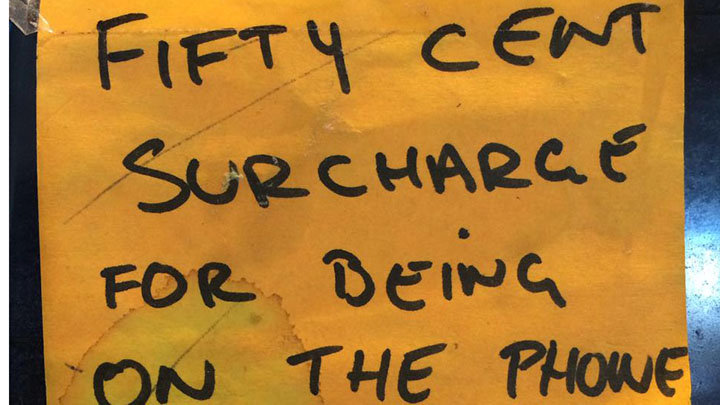 FIFTY CENT
SURCHARGE
FOR BEING
ON THE PHONE